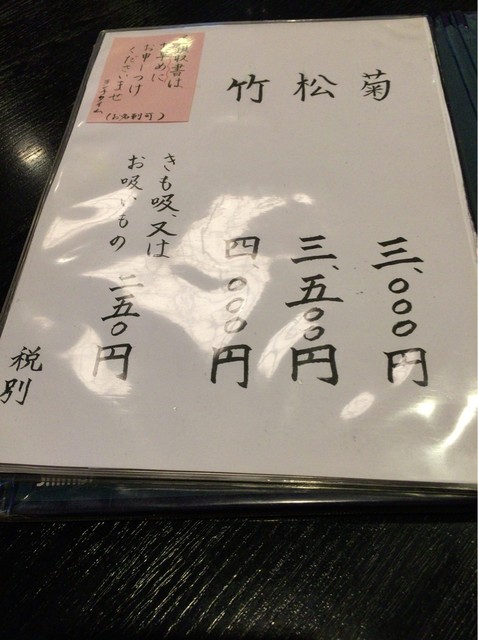 菊 三、〇〇〇円
松 三、五〇〇円
竹 四、〇〇〇円
きも吸、又は
お吸いもの 二五〇円
税別
領収書は
お早めに
お申しつけ
くださいませ